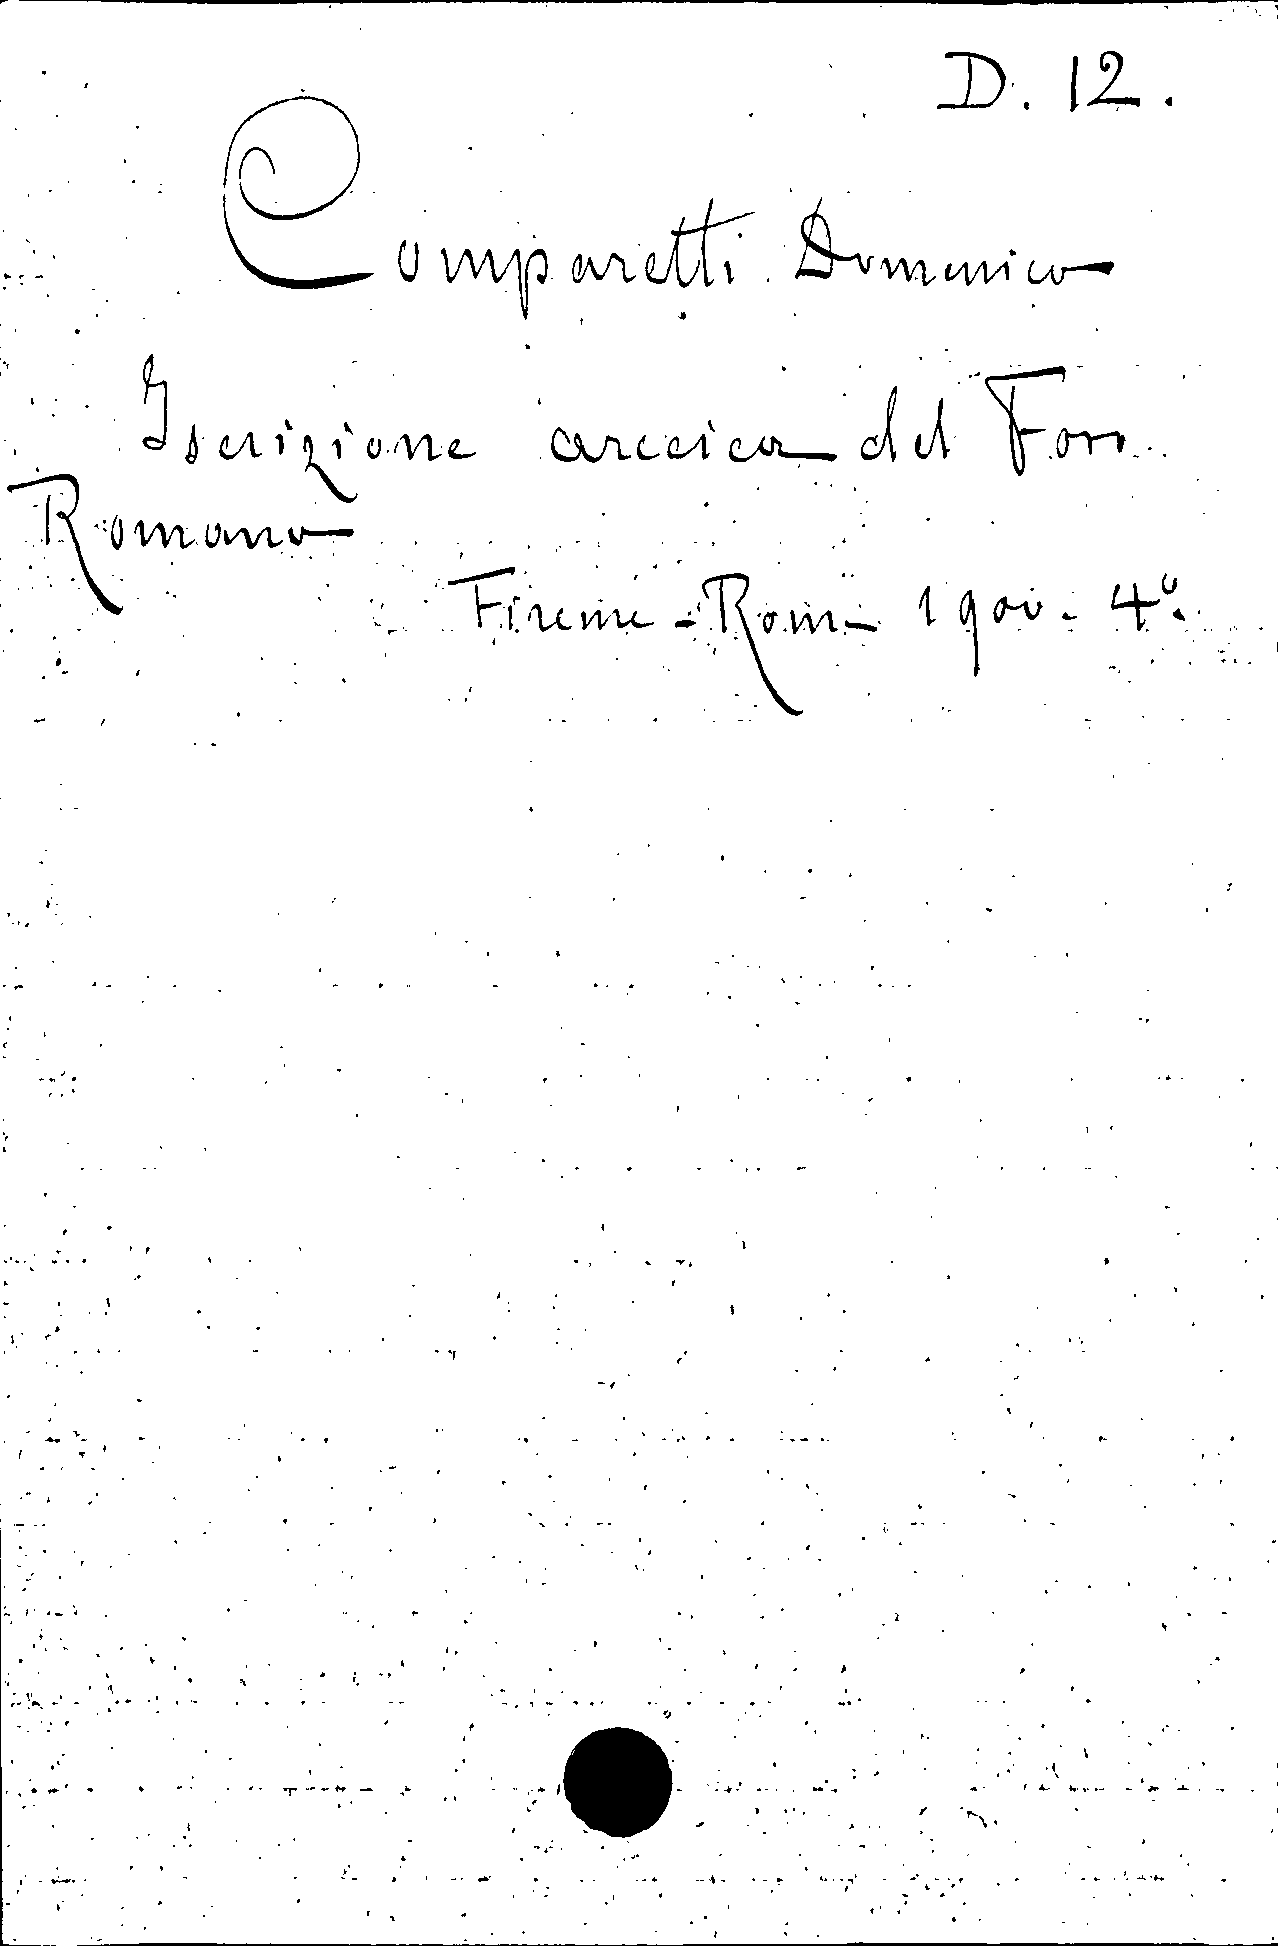 D. 12.
Comparetti Domenico
Iscrizione arcaica del Foro
Romano
Firenze - Roma 1900. 4º.